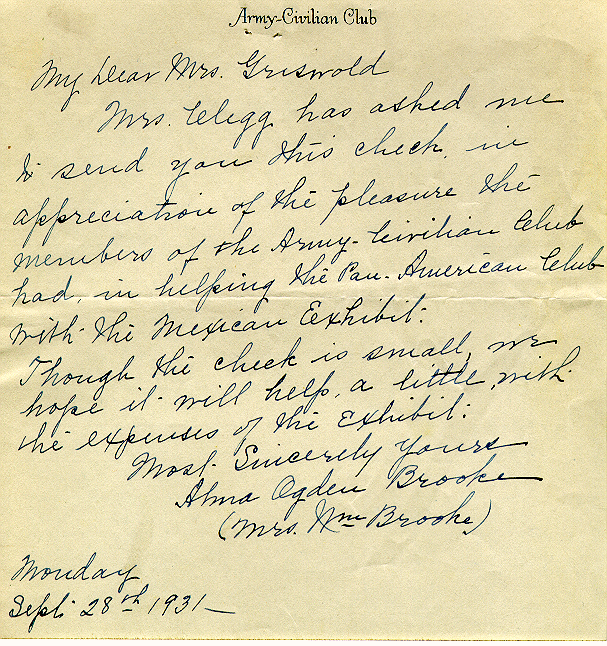 Army-Civilian Club
My Dear Mrs. Griswold
Mrs. Clegg has asked me
to send you this check, in
appreciation of the pleasure the
members of the Army-Civilian Club
had, in helping the Pan-American Club
with the Mexican Exhibit.
Though the check is small, we
hope it will help, a little, with
the expenses of the Exhibit.
Most Sincerely Yours
Alma Ogden Brooke
(Mrs. Wm Brooke)
Monday
Sept. 28th 1931—